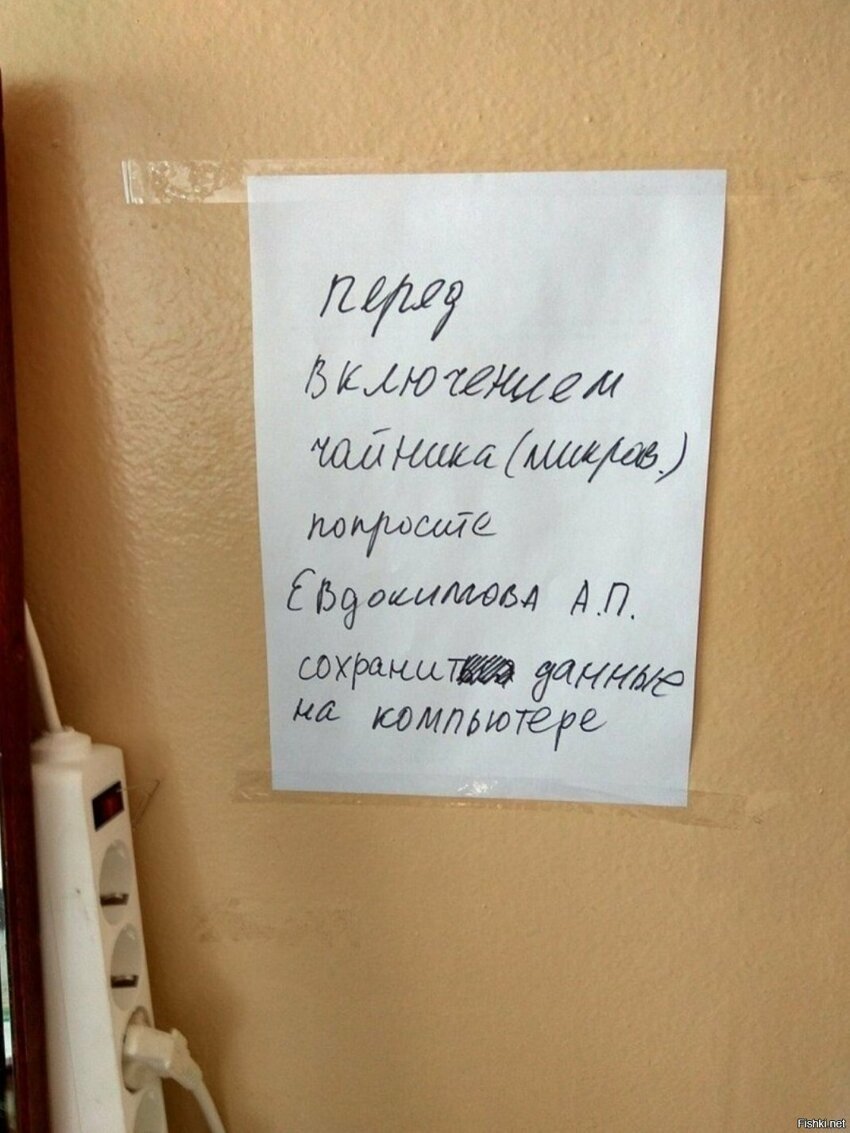 перед
включением
чайника (микров.)
попросите
Евдокимова А.П.
сохранит данные
на компьютере
Fishki.net